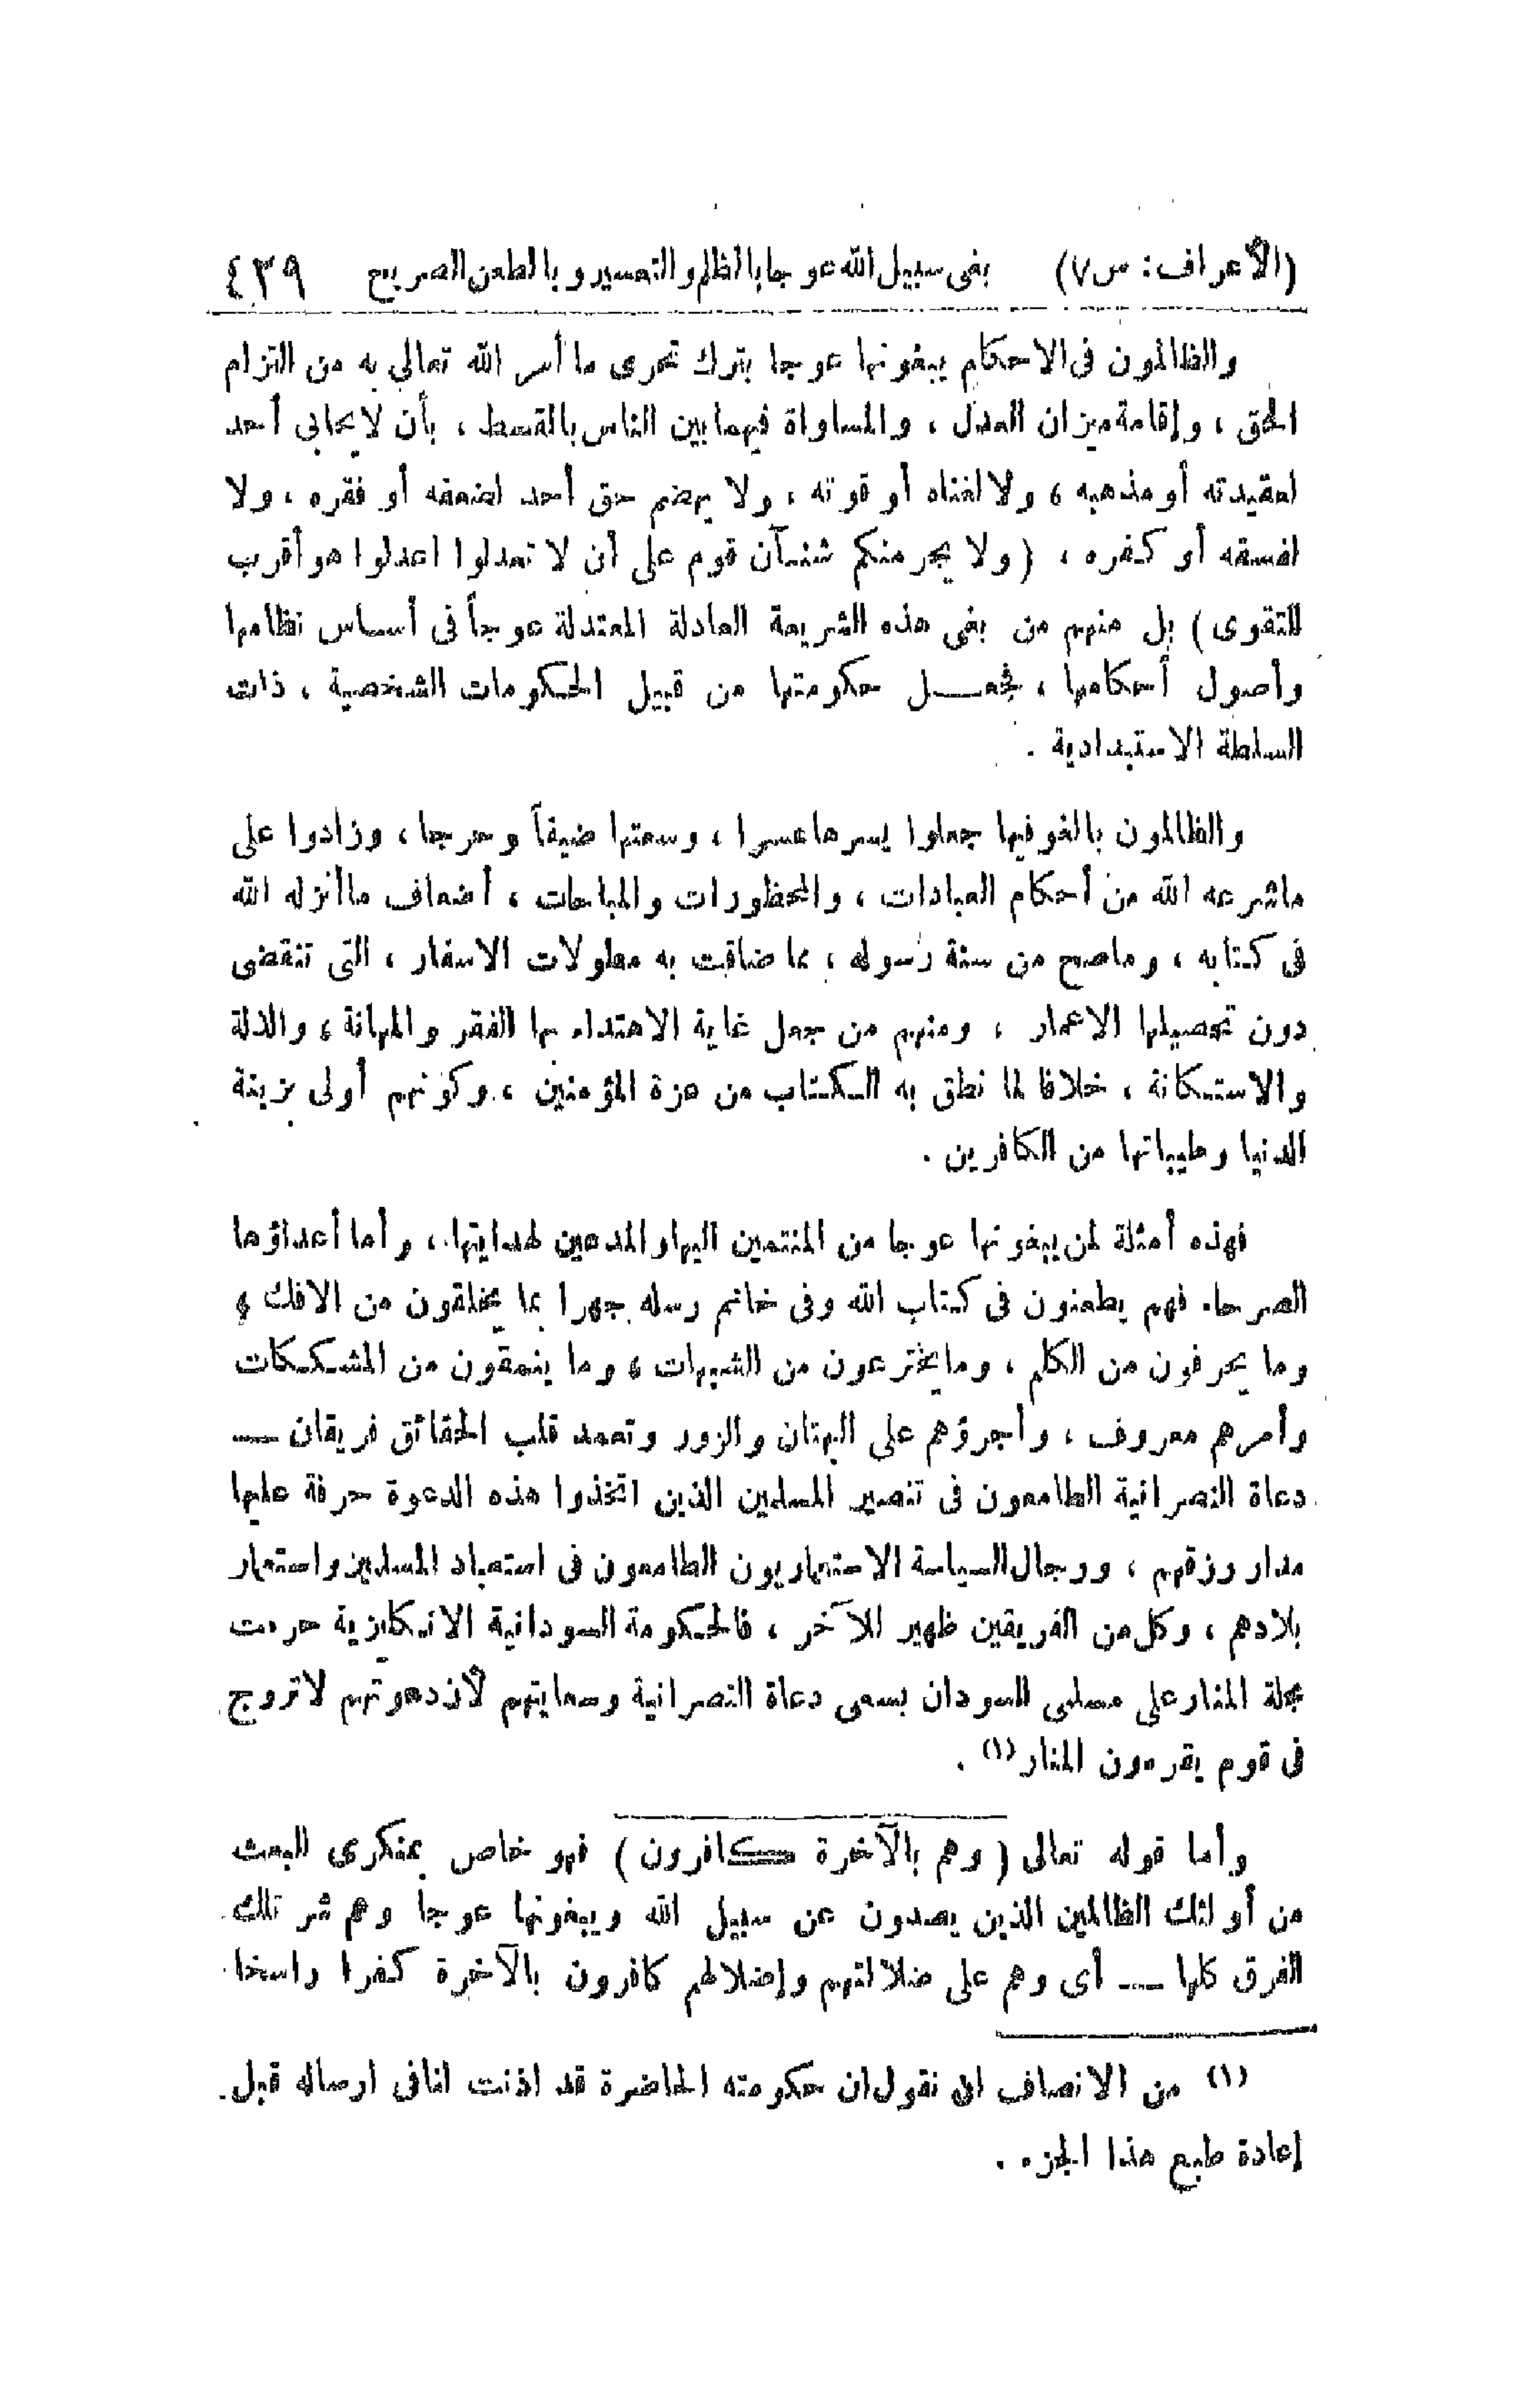 (الأعراف: س٧) بغى سبيل الله عوجا بالظلم والتعسير وبالطعن الصريح ٤٣٩
والظالمون فى الاحكام يبغونها عوجا بترك تحرى ما أمر الله تعالى به من التزام
الحق ، وإقامة ميزان العدل ، والمساواة فيهما بين الناس بالقسط ، بأن لا يحابى أحد
لعقيدته أو مذهبه ، ولا لغناه أو قوته ، ولا يهضم حق أحد لضعفه أو فقره ، ولا
لفسقه أو كفره ، ( ولا يجرمنكم شنـآن قوم على أن لا تعدلوا اعدلوا هو أقرب
للتقوى ) بل منهم من بغى هذه الشريعة العادلة المعتدلة عوجاً فى أساس نظامها
وأصول أحكامها ، فجعـــل حكومتها من قبيل الحكومات الشخصية ، ذات
السلطة الاستبدادية .
والظالمون بالغلو فيها جعلوا يسرها عسرا ، وسعتها ضيقاً وحرجا ، وزادوا على
ماشرعه الله من أحكام العبادات ، والمحظورات والمباحات ، أضعاف ماأنزله الله
فى كتابه ، وماصح من سنة رسوله ، مما ضاقت به مطولات الاسفار ، التى تنقضى
دون تحصيلها الاعمار ، ومنهم من جعل غاية الاهتداء بها الفقر والمهانة ، والذلة
والاستكانة ، خلافا لما نطق به الكتاب من عزة المؤمنين ، وكونهم أولى بزينة
الدنيا وطيباتها من الكافرين .
فهذه أمثلة لمن يبغونها عوجا من المنتمين اليها والمدعين لهدايتها ، وأما أعداؤها
الصرحاء فهم يطعنون فى كتاب الله وفى خاتم رسله جهرا بما يخلقون من الافك ،
وما يحرفون من الكلم ، وما يخترعون من الشبهات ، وما ينمقون من المشككات
وأمرهم معروف ، وأجرؤهم على البهتان والزور وتعمد قلب الحقائق فريقان —
دعاة النصرانية الطامعون فى تنصير المسلمين الذين اتخذوا هذه الدعوة حرفة عليها
مدار رزقهم ، ورجال السياسة الاستعماريون الطامعون فى استعباد المسلمين واستعمار
بلادهم ، وكل من الفريقين ظهير للآخر ، فالحكومة السودانية الانكليزية حرمت
مجلة المنار على مسلمى السودان بسعى دعاة النصرانية وسعايتهم لأن دعوتهم لا تروج
فى قوم يقرءون المنار (١) .
وأما قوله تعالى ( وهم بالآخرة كافرون ) فهو خاص بمنكرى البعث
من أولئك الظالمين الذين يصدون عن سبيل الله ويبغونها عوجا وهم شر تلك
الفرق كلها — أى وهم على ضلالتهم وإضلالهم كافرون بالآخرة كفرا راسخا
(١) من الانصاف ان نقول ان حكومته الحاضرة قد اذنت لنا فى ارساله قبل
إعادة طبع هذا الجزء .